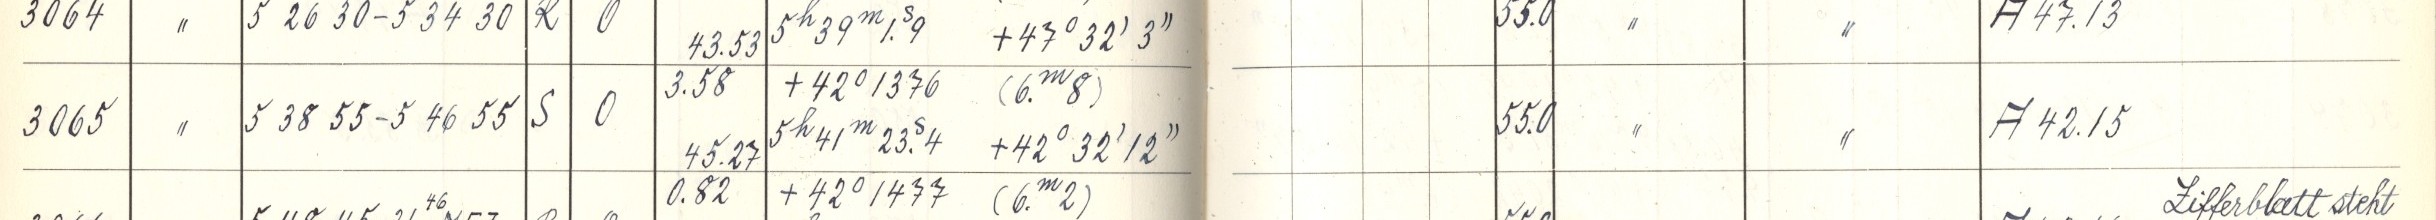 3064 " 5 26 30 - 5 34 30 R O 43.53 5h 39m 1.s9 +47° 32' 3" 55.0 " " A 47.13
3.58 +42° 1376 (6.m8)
3065 " 5 38 55 - 5 46 55 S O 45.27 5h 41m 23.s4 +42° 32' 12" 55.0 " " A 42.15
0.82 +42° 1477 (6.m2)
Zifferblatt steht